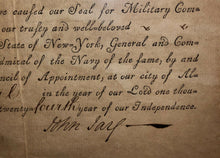 we caused our Seal for Military Com-
our trusty and well-beloved
State of New-York, General and Com-
dmiral of the Navy of the same, by and
ouncil of Appointment, at our city of Al-
in the year of our Lord one thou-
twenty-fourth year of our Independence.
John Jay